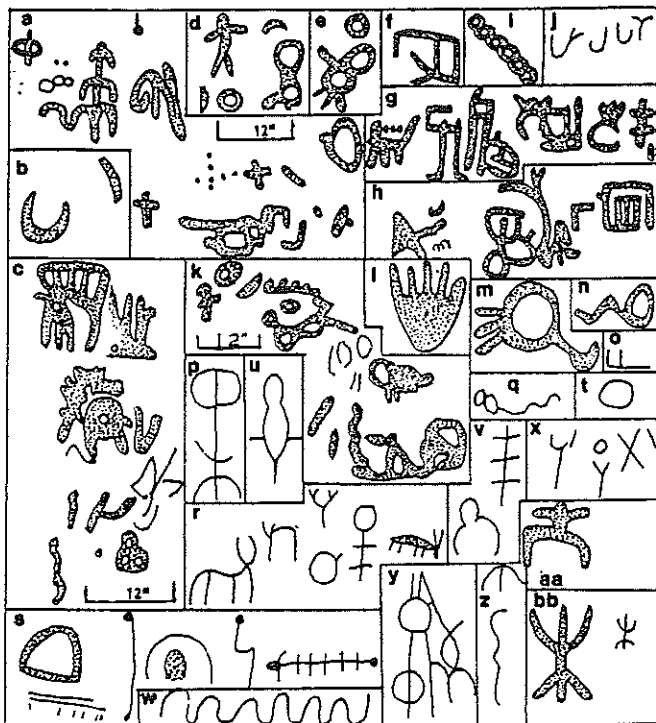 a
d
e
f
i
j
12"
g
b
h
c
k
l
2"
m
n
o
p
u
q
t
v
x
r
12"
aa
y
z
bb
s
w